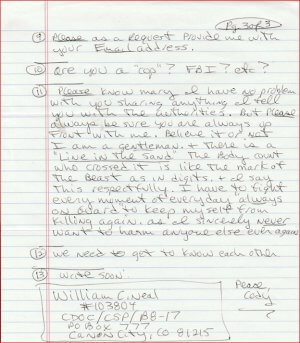 Pg. 3 of 3
(9) Please as a Request Provide me with
your Email address.
(10) are you a "cop"? FBI? etc?
(11) Please know mary I have no problem
with you sharing anything I tell
you with the authorities. But Please
always be sure you are always up
front with me. Believe it or not
I am a gentleman. + there is a
"Line in the sand" The Body count
who crossed it is like the mark of
The Beast as in digits. + I say
This respectfully. I have to fight
every moment of everyday always
on guard to keep myself from
killing again. as I sincerely never
want to harm anyone else ever again
(12) we need to get to know each other
(13) write soon.
William C. Neal
#103804
CDOC/CSP/B8-17
PO Box 777
Canon City, CO 81215
Pease
Cody
?